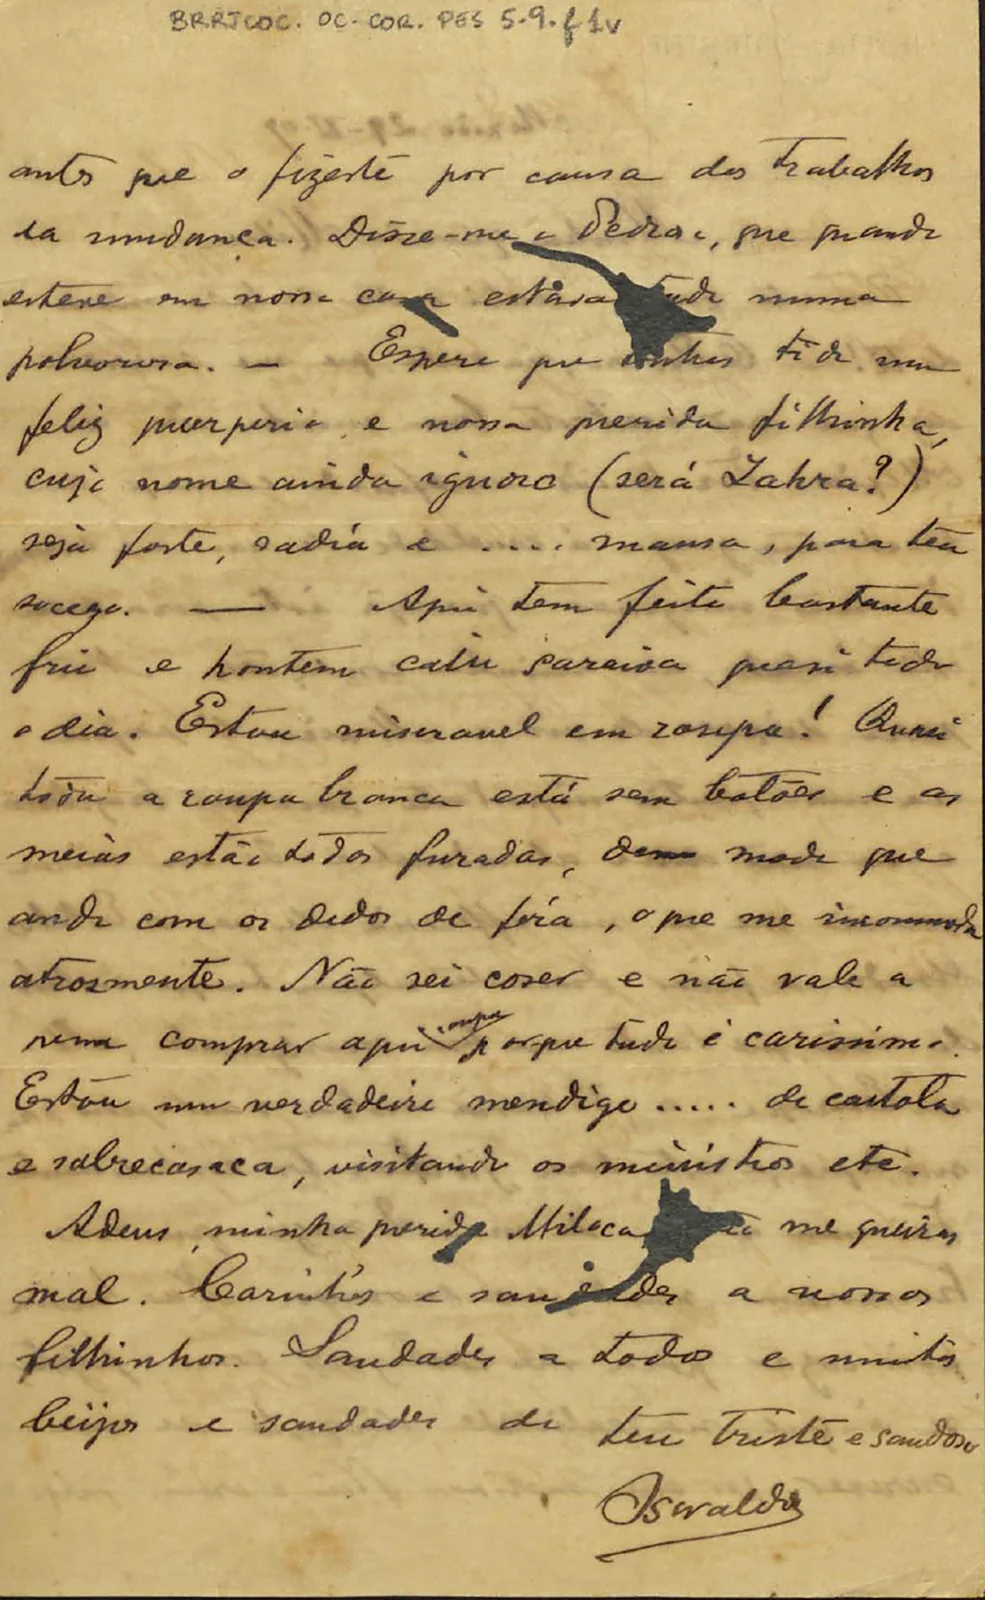 BRRJCOC. OC. COR. PES 5-9. f 1v
antes que o fizeste por causa dos trabalhos
da mudança. Disse-me o Pedroso, que quando
esteve em nossa casa estava tudo numa
polvorosa. — Espero que tenhas tido um
feliz puerperio e nossa querida filhinha,
cujo nome ainda ignoro (será Zahra?)
seja forte, sadia e .... mansa, para teu
socego. — Aqui tem feito bastante
frio e hontem cahiu saraiva quasi todo
o dia. Estou miseravel em roupa! Quasi
toda a roupa branca está sem botões e as
meias estão todas furadas, de modo que
ando com os dedos de fóra, o que me incommoda
atrozmente. Não sei coser e não vale a
pena comprar aqui roupa porque tudo é carissimo.
Estou um verdadeiro mendigo ..... de cartola
e sobrecasaca, visitando os ministros etc.
Adeus, minha querida Miloca, não me queiras
mal. Carinhos e saudades a nossos
filhinhos. Saudades a todos e muitos
beijos e saudades de teu triste e saudoso
Oswaldo